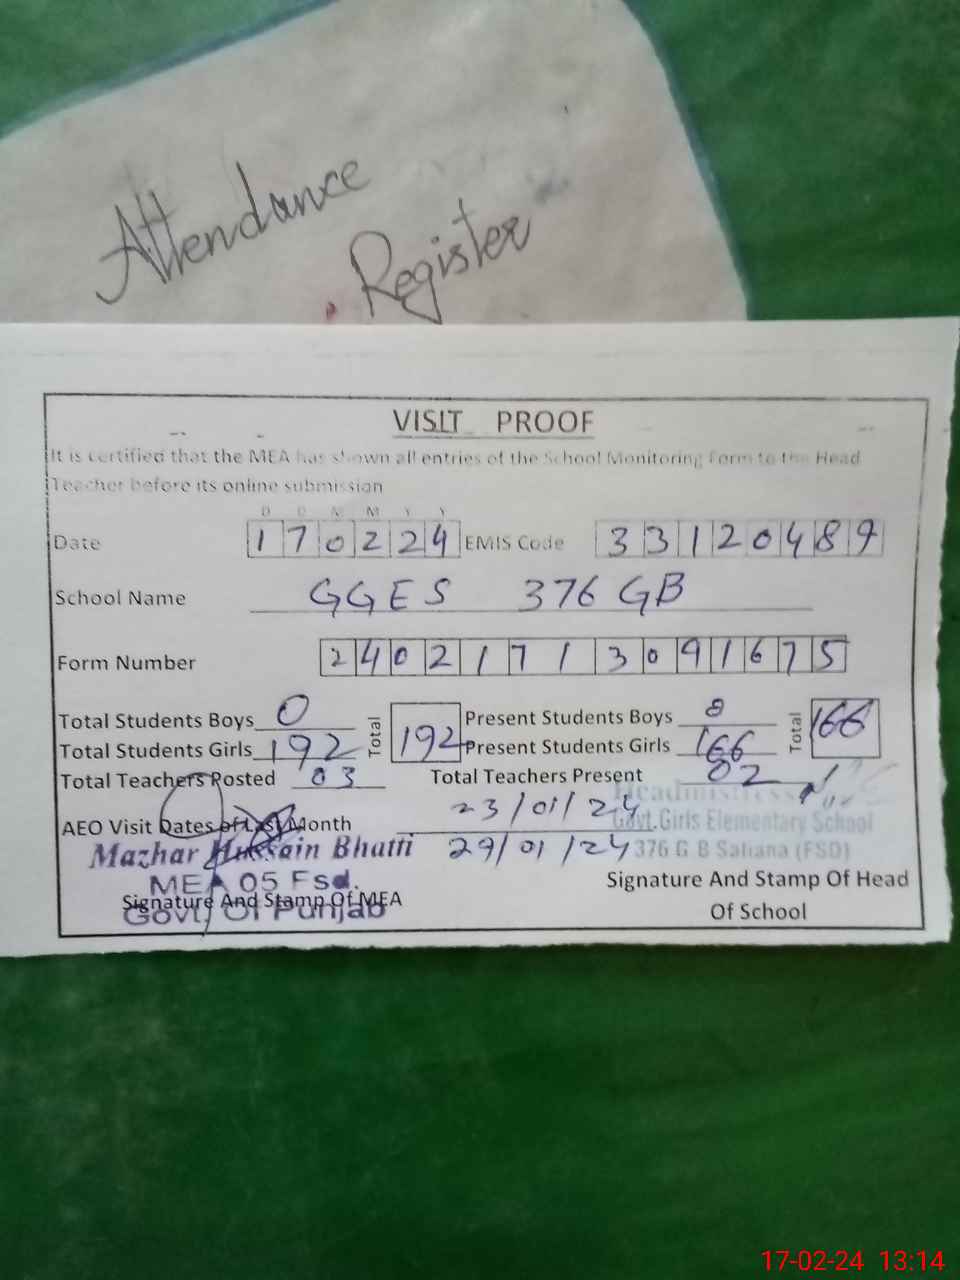 Attendance
Register
VISIT PROOF
It is certified that the MEA has shown all entries of the School Monitoring Form to the Head
Teacher before its online submission
D D M M Y Y
Date 170224 EMIS Code 33120489
School Name GGES 376 GB
Form Number 24021713091675
Total Students Boys 0 Total 192 Present Students Boys 0 Total 166
Total Students Girls 192 Present Students Girls 166
Total Teachers Posted 03 Total Teachers Present 02
AEO Visit Dates of Last Month 23/01/24
29/01/24
Headmistress
Govt. Girls Elementary School
376 G B Saliana (FSD)
Mazhar Hussain Bhatti
MEA 05 Fsd.
Govt. Of Punjab
Signature And Stamp Of MEA
Signature And Stamp Of Head
Of School
17-02-24 13:14